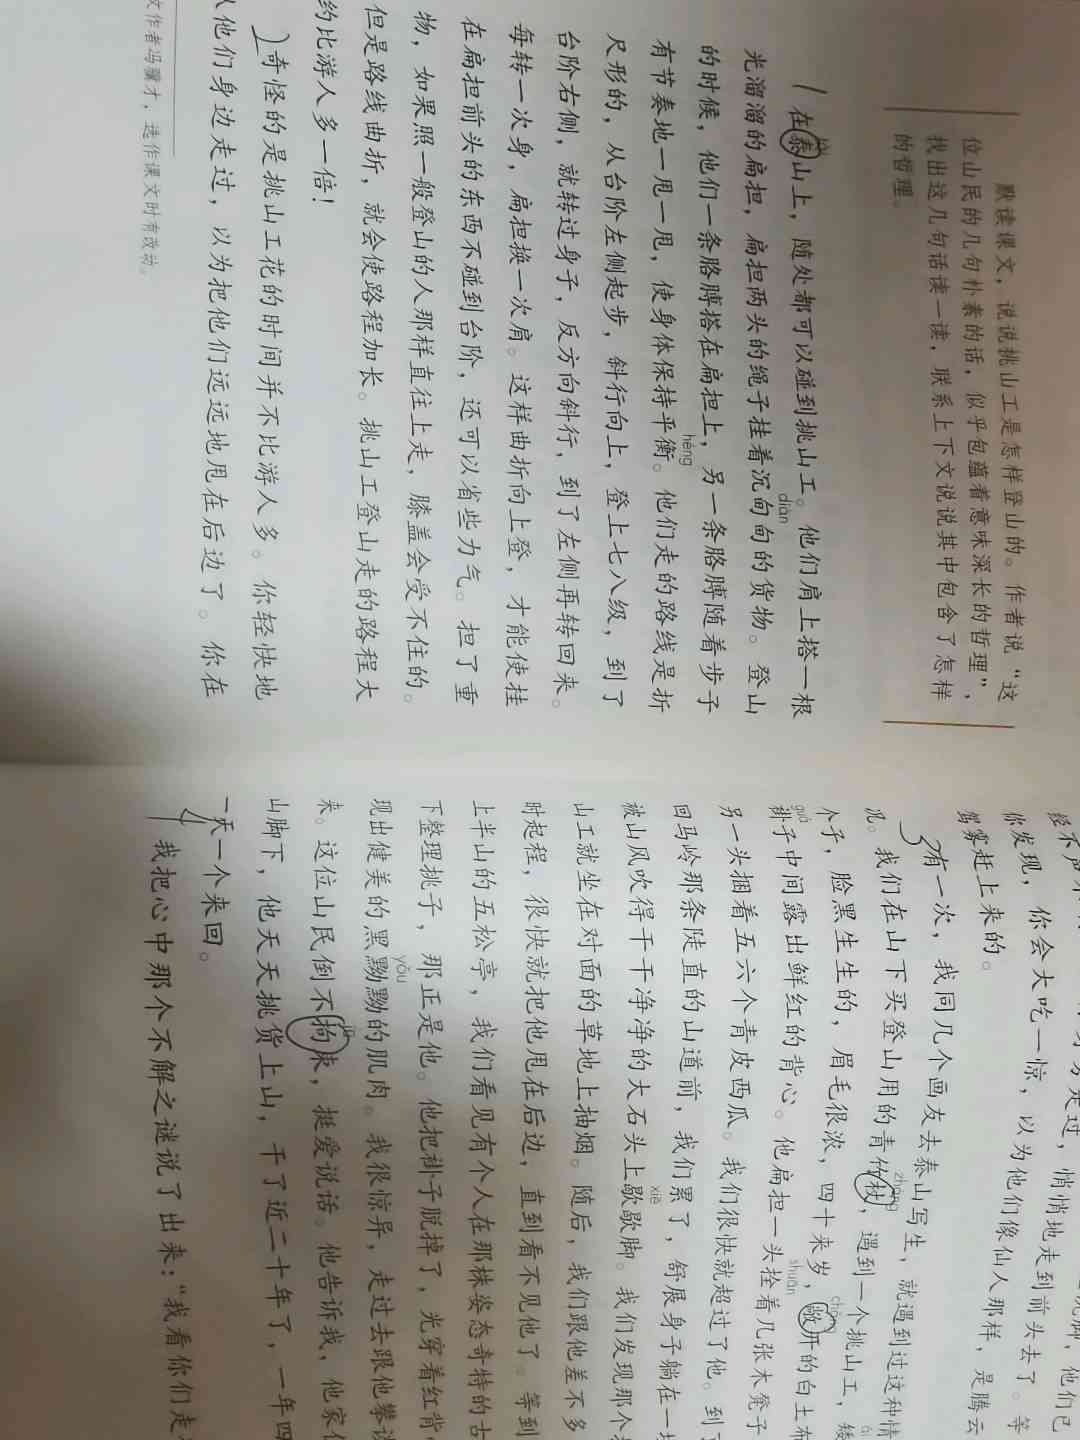 默读课文，说说挑山工是怎样登山的。作者说“这
位山民的几句朴素的话，似乎包蕴着意味深长的哲理”，
找出这几句话读一读，联系上下文说说其中包含了怎样
的哲理。
在泰山上，随处都可以碰到挑山工。他们肩上搭一根
光溜溜的扁担，扁担两头的绳子挂着沉甸甸的货物。登山
diàn
的时候，他们一条胳膊搭在扁担上，另一条胳膊随着步子
有节奏地一甩一甩，使身体保持平衡。他们走的路线是折
héng
尺形的，从台阶左侧起步，斜行向上，登上七八级，到了
台阶右侧，就转过身子，反方向斜行，到了左侧再转回来。
每转一次身，扁担换一次肩。这样曲折向上登，才能使挂
在扁担前头的东西不碰到台阶，还可以省些力气。担了重
物，如果照一般登山的人那样直往上走，膝盖会受不住的。
但是路线曲折，就会使路程加长。挑山工登山走的路程大
约比游人多一倍！
奇怪的是挑山工花的时间并不比游人多。你轻快地
从他们身边走过，以为把他们远远地甩在后边了。你在
文作者冯骥才，选作课文时有改动。
走过，悄悄地走到前头去了。等
你发现，你会大吃一惊，以为他们像仙人那样，是腾云
驾雾赶上来的。
有一次，我同几个画友去泰山写生，就遇到过这种情
况。我们在山下买登山用的青竹杖，遇到一个挑山工，矮
zhàng
ǎi
个子，脸黑生生的，眉毛很浓，四十来岁，敞开的白土布
chǎng
褂子中间露出鲜红的背心。他扁担一头拴着几张木凳子
guà
shuān
另一头捆着五六个青皮西瓜。我们很快就超过了他。到了
回马岭那条陡直的山道前，我们累了，舒展身子躺在一块
被山风吹得干干净净的大石头上歇歇脚。我们发现那个挑
xiē
山工就坐在对面的草地上抽烟。随后，我们跟他差不多
时起程，很快就把他甩在后边，直到看不见他了。等到
上半山的五松亭，我们看见有个人在那株姿态奇特的古
下整理挑子，那正是他。他把褂子脱掉了，光穿着红背
现出健美的黑黝黝的肌肉。我很惊异，走过去跟他攀谈
yǒu
来。这位山民倒不拘束，挺爱说话。他告诉我，他家住
jū
山脚下，他天天挑货上山，干了近二十年了，一年四
一天一个来回。
我把心中那个不解之谜说了出来：“我看你们走